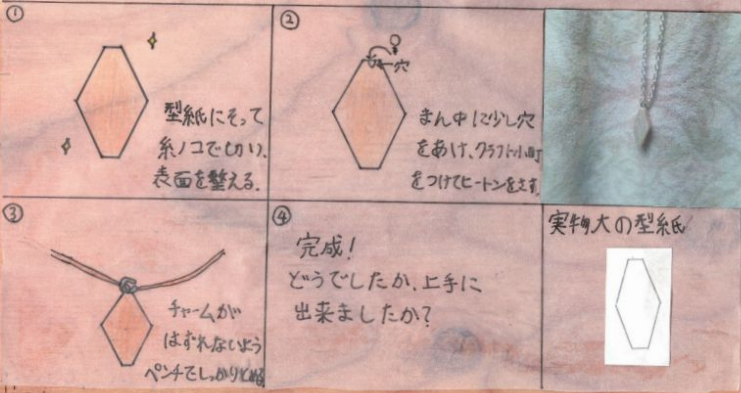 ①
型紙にそって
糸ノコでしかり、
表面を整える。
②
穴
まん中に少し穴
をあけ、クラフト小町
をつけてヒートンをさす。
③
チャームが
はずれないよう
ペンチでしっかりとめる
④
完成!
どうでしたか、上手に
出来ましたか?
実物大の型紙